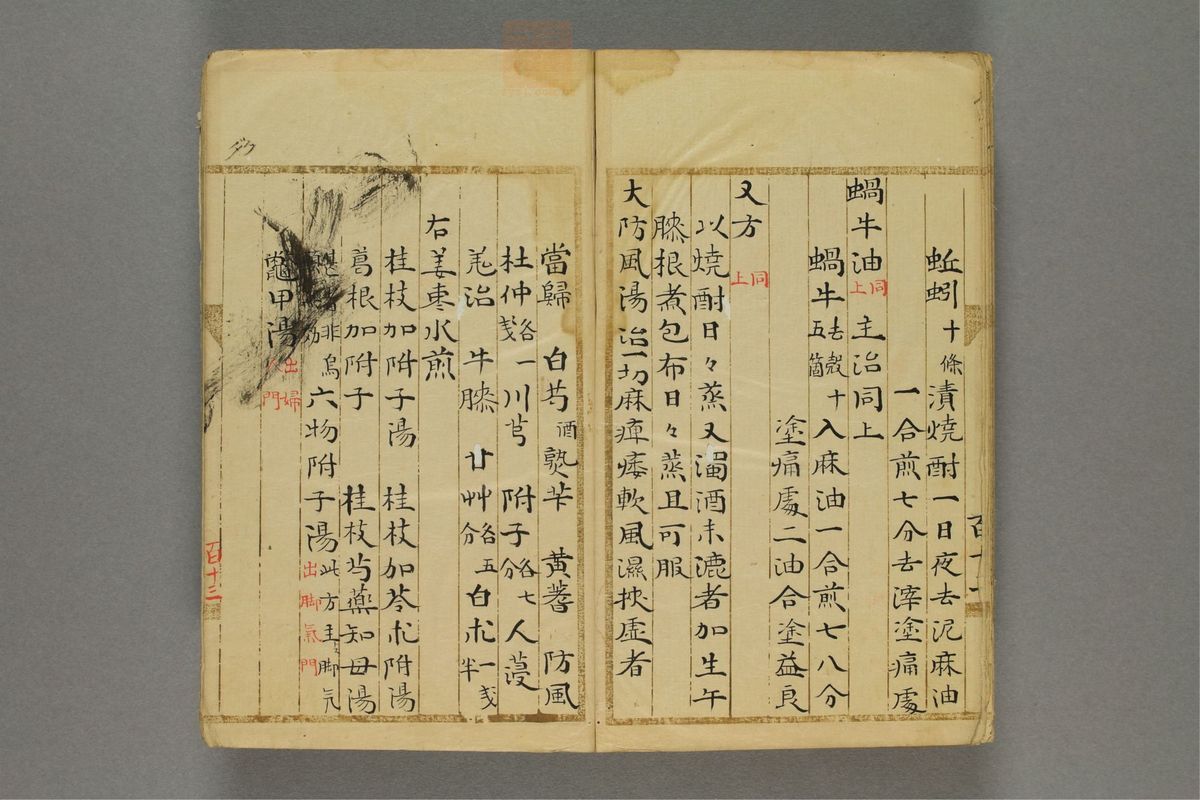 蚯蚓十條漬燒酎一日夜去泥麻油
一合煎七分去滓塗痛處
蝸牛油同上主治同上
蝸牛去殼十五箇入麻油一合煎七八分
塗痛處二油合塗益良
又方同上
以燒酎日々蒸又濁酒未漉者加生午
膝根煮包布日々蒸且可服
大防風湯治一切麻痺痿軟風濕挾虛者
當歸 白芍酒 熟芐 黃蓍 防風
杜仲各一戔 川芎 附子各七分 人蔆
羗治 牛膝 廿艸各五分 白朮一戔半
右姜棗水煎
桂枝加附子湯 桂枝加苓朮附湯
葛根加附子 桂枝芍藥知母湯
非烏 六物附子湯出脚氣門此方主脚氣
鼈甲湯出婦人門
百十三